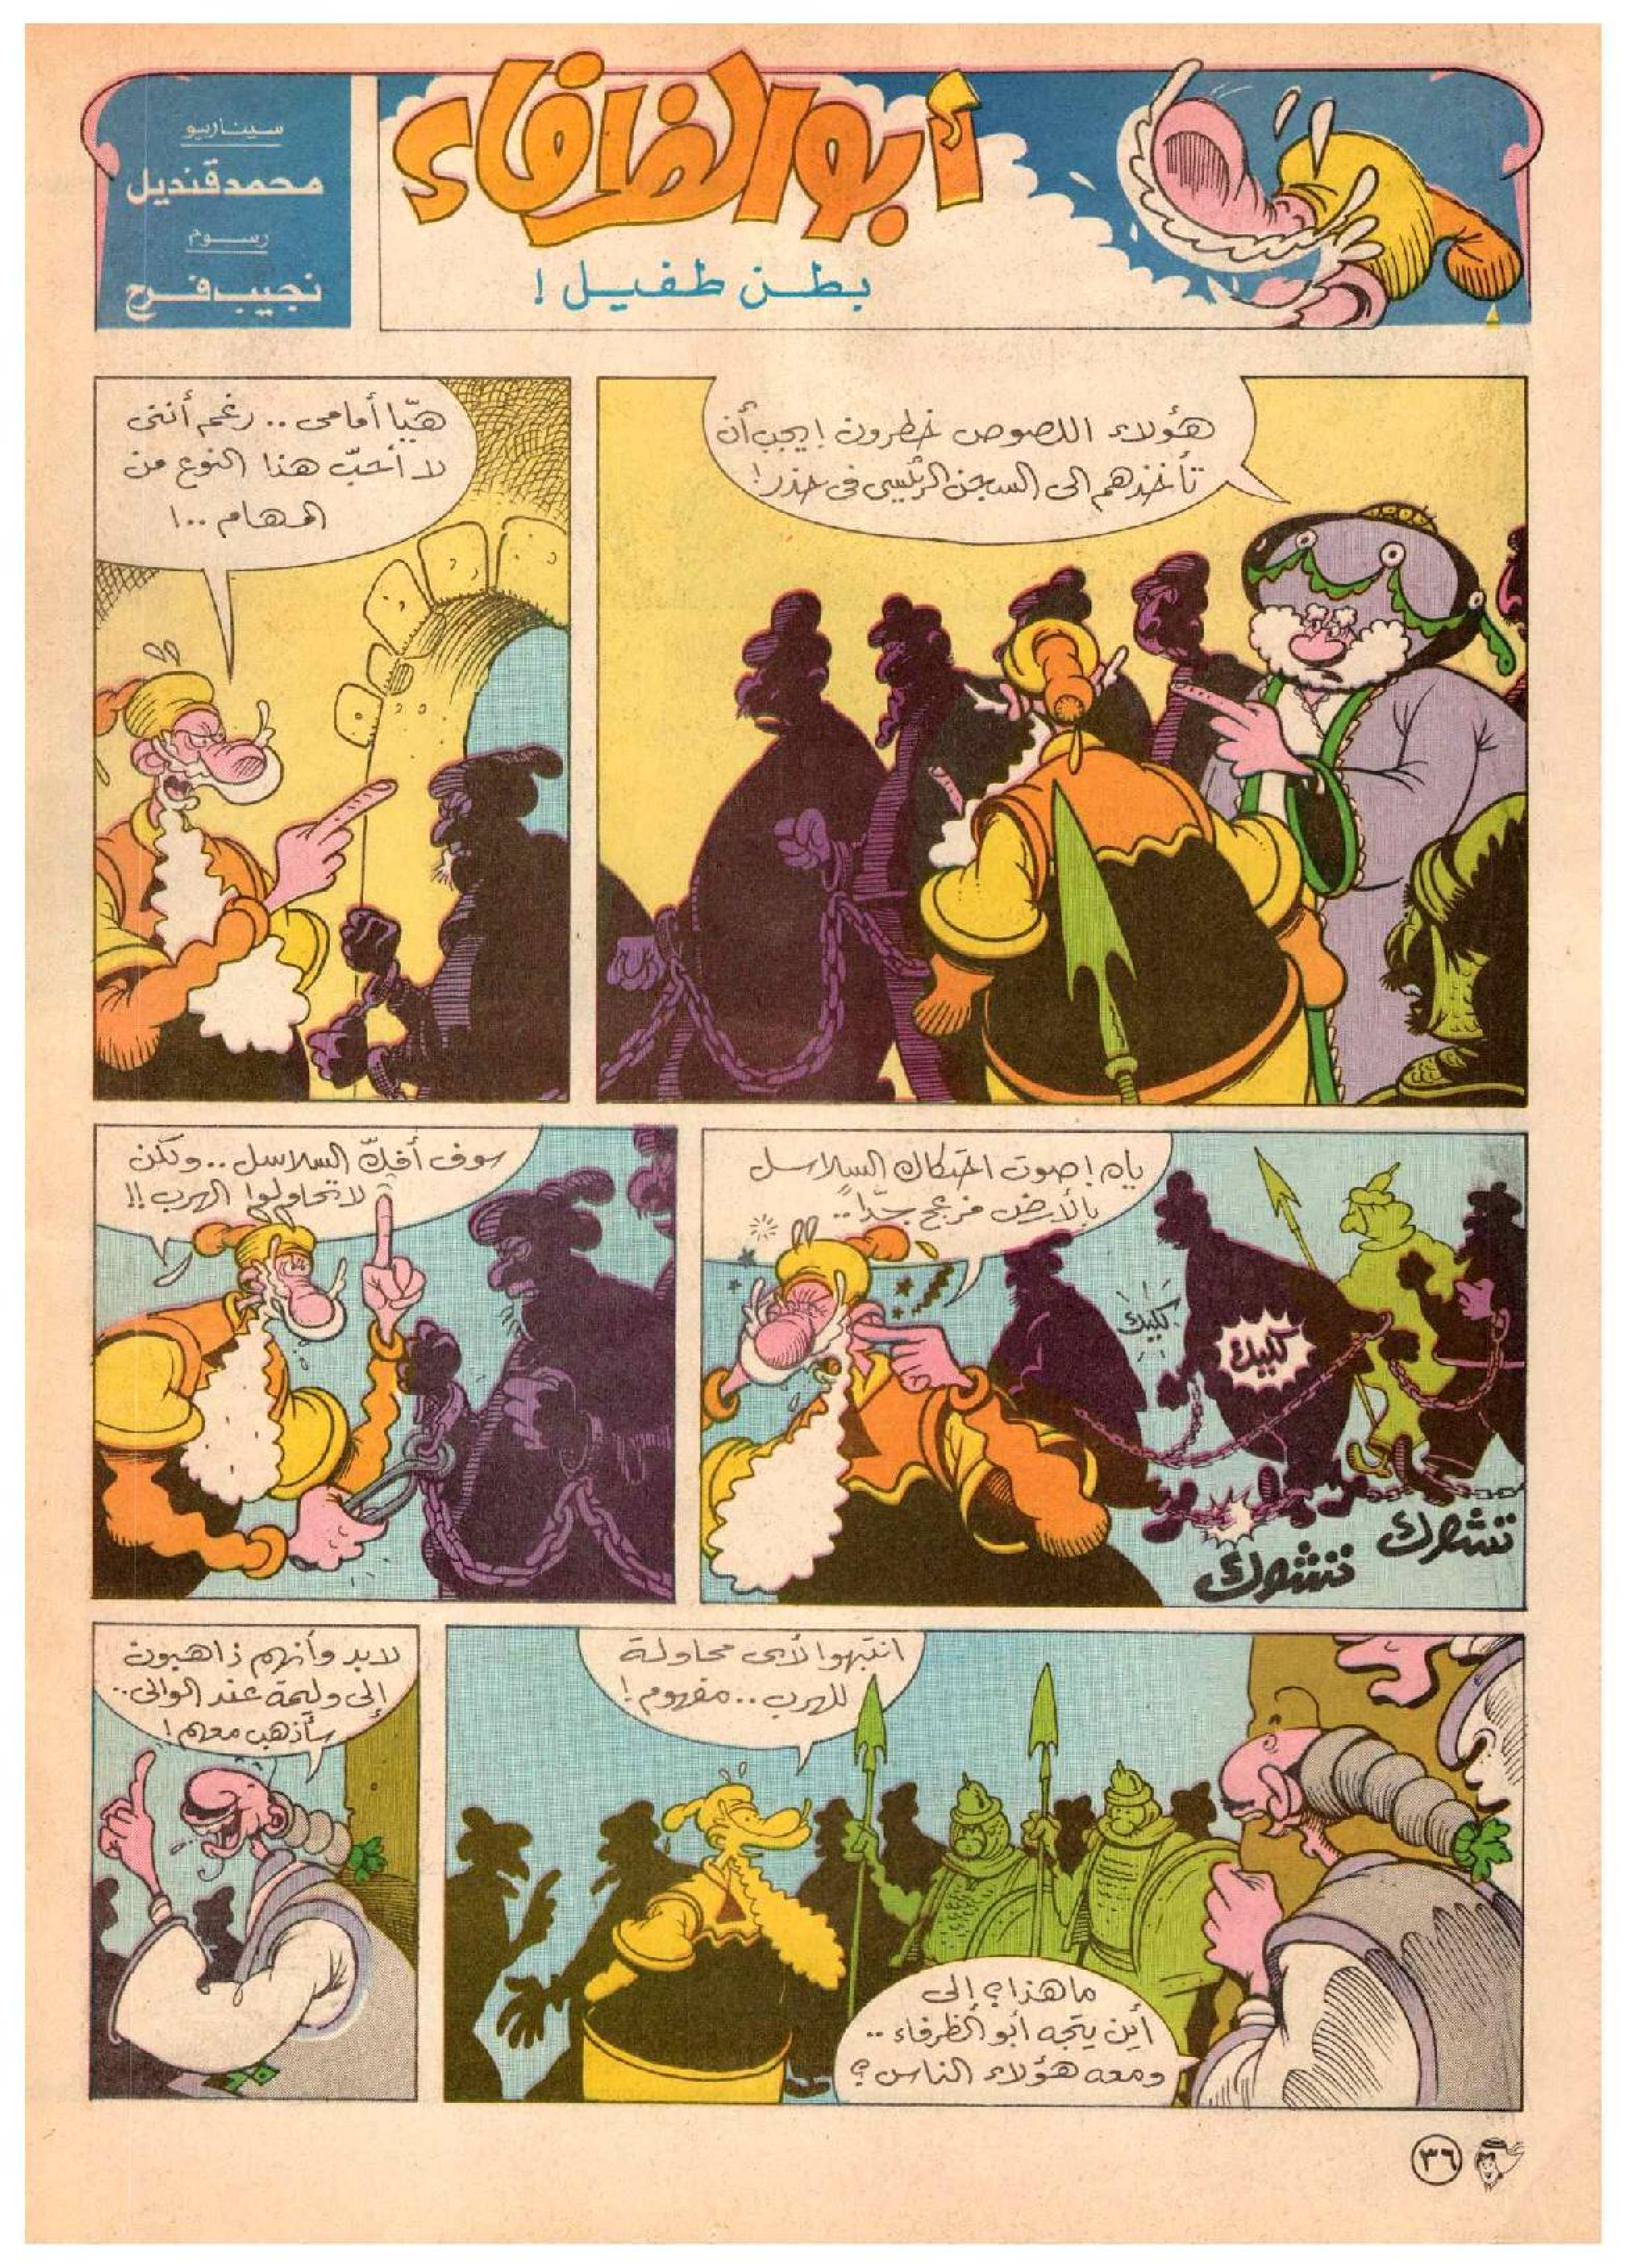 أبو الظرفاء
بطن طفيل !
سيناريو
محمد قنديل
رسوم
نجيب فرح
هؤلاء اللصوص خطرون ! يجب أن
تأخذهم الى السجن الرئيسي فى حذر !
هيّا أمامى .. رغم أننى
لا أحبّ هذا النوع من
المهام ..!
ياه ! صوت احتكاك السلاسل
بالأرض مزعج جدّاً ..
كليك
كليك
تشراك
تشراك
سوف أفكّ السلاسل .. ولكن
لا تحاولوا الهرب !!
انتبهوا لأى محاولة
للهرب .. مفهوم !
ما هذا ؟ إلى
أين يتجه أبو الظرفاء ..
ومعه هؤلاء الناس ؟
لابد وأنهم ذاهبون
إلى وليمة عند الوالى ..
سأذهب معهم !
٣٦